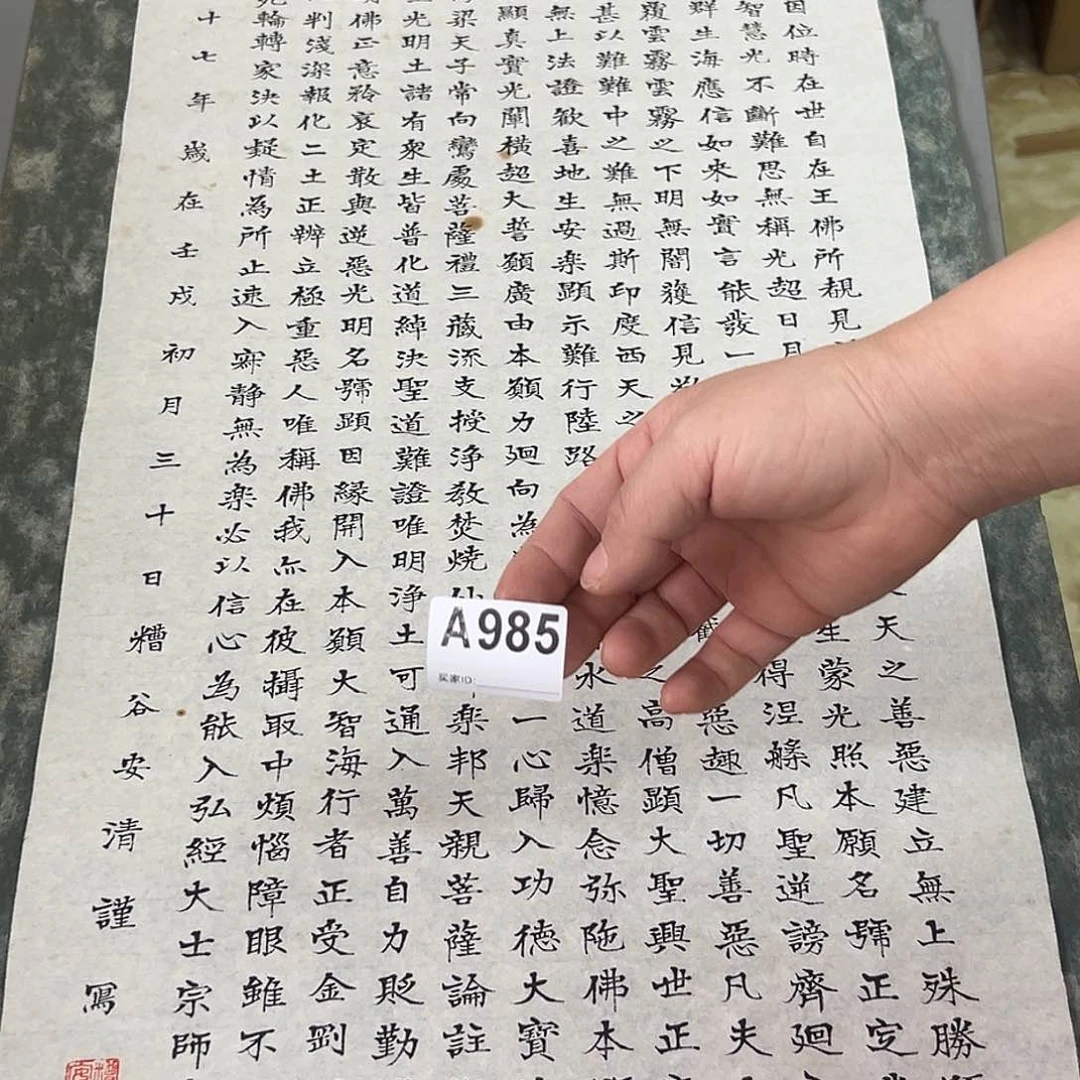 因位時在世自在王佛所覩見天之善惡建立無上殊勝
智慧光不斷難思無稱光超日月生蒙光照本願名號正定
群生海應信如来如實言能發一得涅槃凡聖逆謗齊廻
覆雲霧雲霧之下明無闇獲信見惡趣一切善惡凡夫
甚以難難中之難無過斯印度西天之之高僧顕大聖興世正
無上法證歓喜地生安楽顕示難行陸路水道楽憶念弥陁佛本
顯真實光闡横超大誓願廣由本願力廻向為一心歸入功徳大寶
梁天子常向鸞處菩薩禮三藏流支授浄教焚燒楽邦天親菩薩論註
光明土諸有衆生皆普化道綽決聖道難證唯明浄土可通入萬善自力貶勤
佛正意矜哀定散與逆惡光明名號顕因縁開入本願大智海行者正受金剛
判淺深報化二土正辨立極重惡人唯稱佛我亦在彼攝取中煩惱障眼雖不
輪轉家決以疑情為所止速入寂静無為楽必以信心為能入弘經大士宗師
十七年歳在壬戌初月三十日糟谷安清謹寫
A985
买家ID: